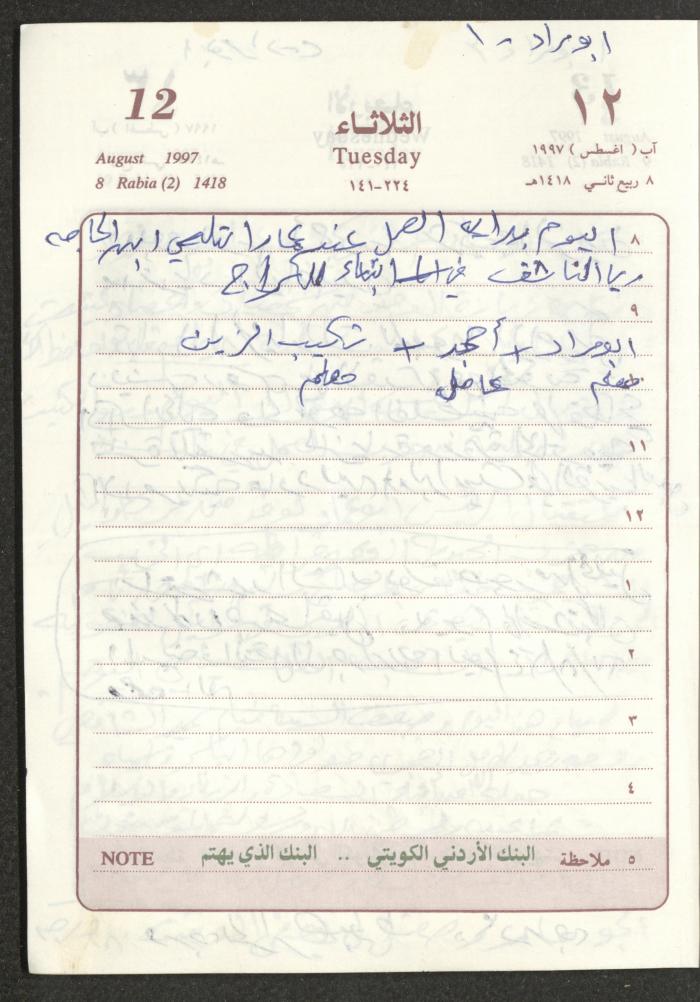 ابو مراد - ١
12
١٢
الثلاثاء
August 1997
Tuesday
آب ( اغسطس ) ١٩٩٧
8 Rabia (2) 1418
٢٢٤-١٤١
٨ ربيع ثاني ١٤١٨هـ
٨ اليوم بداية العمل عند ابن الحاجه
في اثناء الكراج
٩
ابو مراد + أحمد + تركيب الزين
١٠ معلم عامل معلم
١١
١٢
١
٢
٣
٤
٥ ملاحظة البنك الأردني الكويتي .. البنك الذي يهتم NOTE